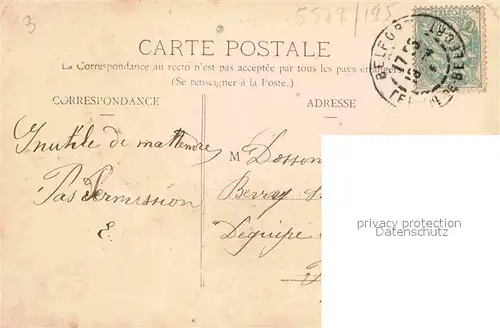 3
5519/195
CARTE POSTALE
La Correspondance au recto n'est pas acceptée par tous les pays étrangers
(Se renseigner à la Poste.)
CORRESPONDANCE
ADRESSE
Inutile de mattendre
Pas Permission
E.
M Dosson
Bevry
Dequipe
BELFORT
17
privacy protection
Datenschutz